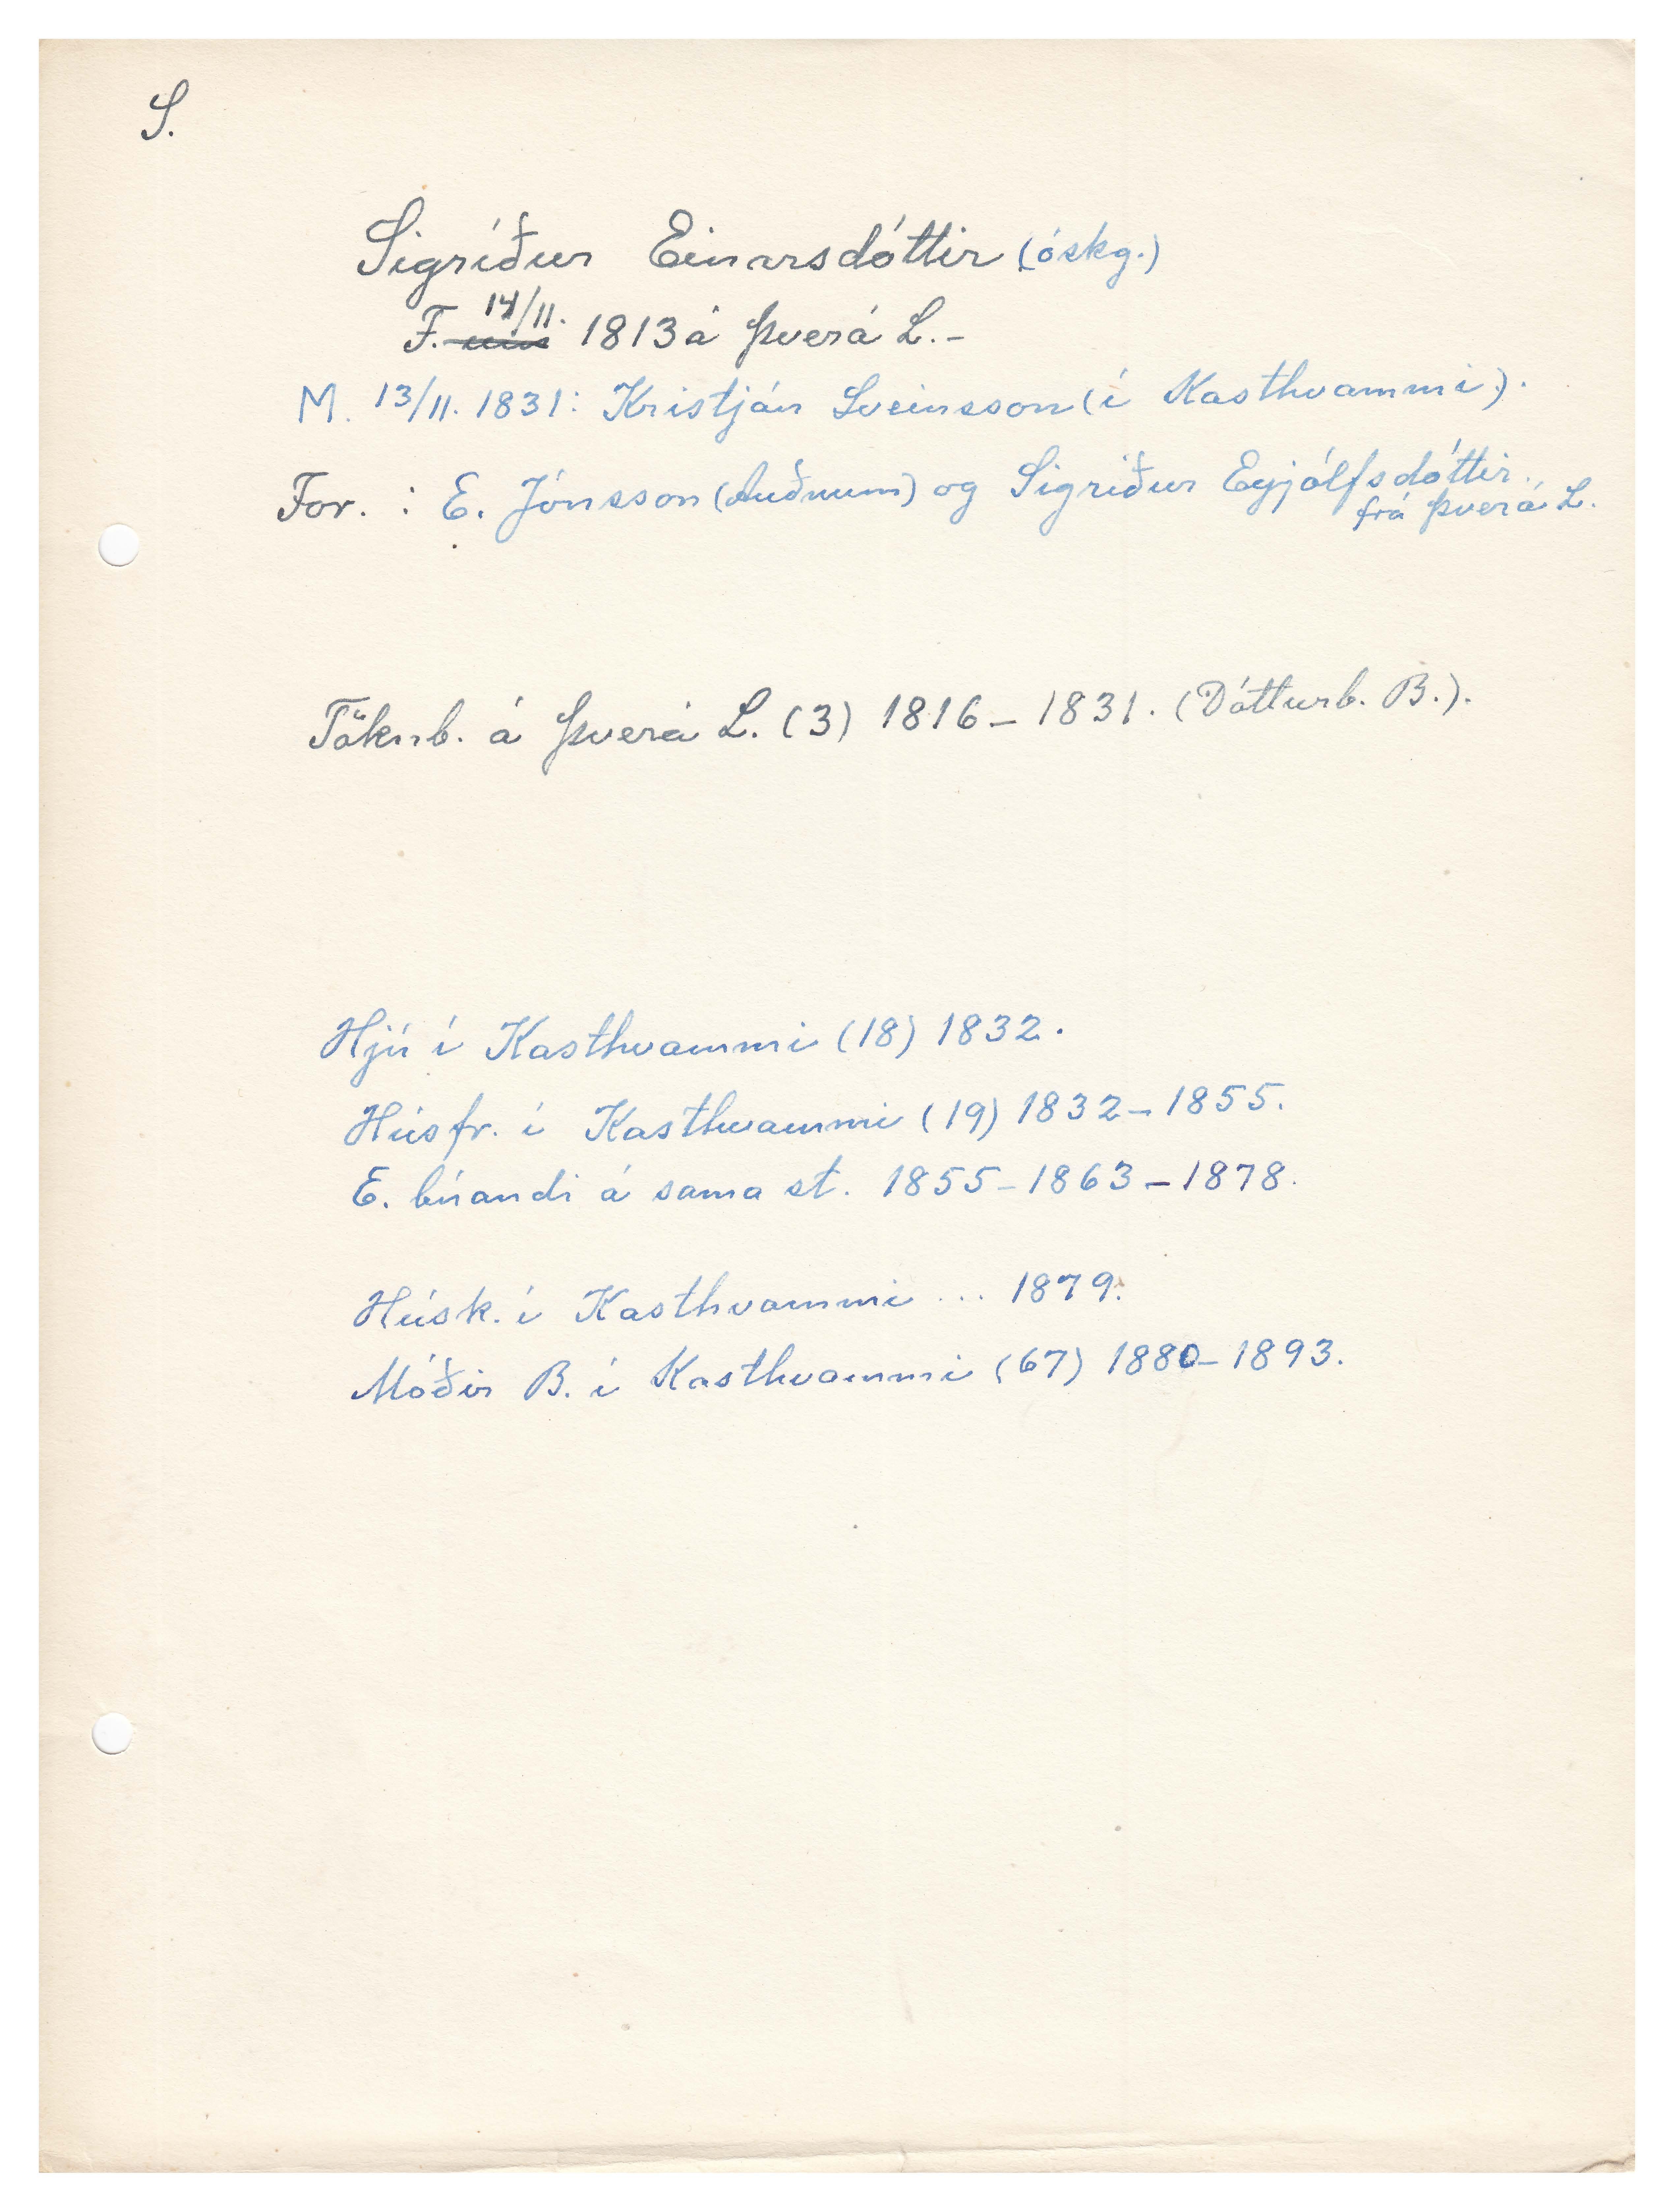 S.
Sigríður Einarsdóttir (óskg.)
F. 14/11. 1813 á Þverá L.-
M. 13/11. 1831: Kristján Sveinsson (í Kasthvammi).
For. : E. Jónsson (Auðnum) og Sigríður Eyjólfsdóttir
frá Þverá L.
Tökub. á Þverá L. (3) 1816 – 1831. (Dótturb. B.).
Hjú í Kasthvammi (18) 1832.
Húsfr. í Kasthvammi (19) 1832 – 1855.
E. búandi á sama st. 1855 – 1863 – 1878.
Húsk. í Kasthvammi ... 1879.
Móðir B. í Kasthvammi (67) 1880 – 1893.